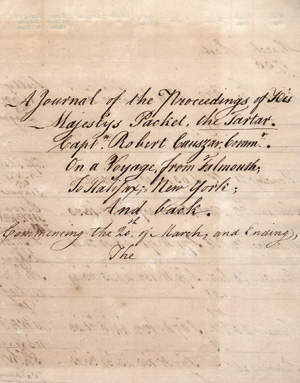 A Journal of the Proceedings of His
Majestys Packet, the Tartar.
Captn. Robert Comm.r
On a Voyage, from Falmouth,
To Halifax; New York;
And back.
Commencing the of March, and Ending,
The